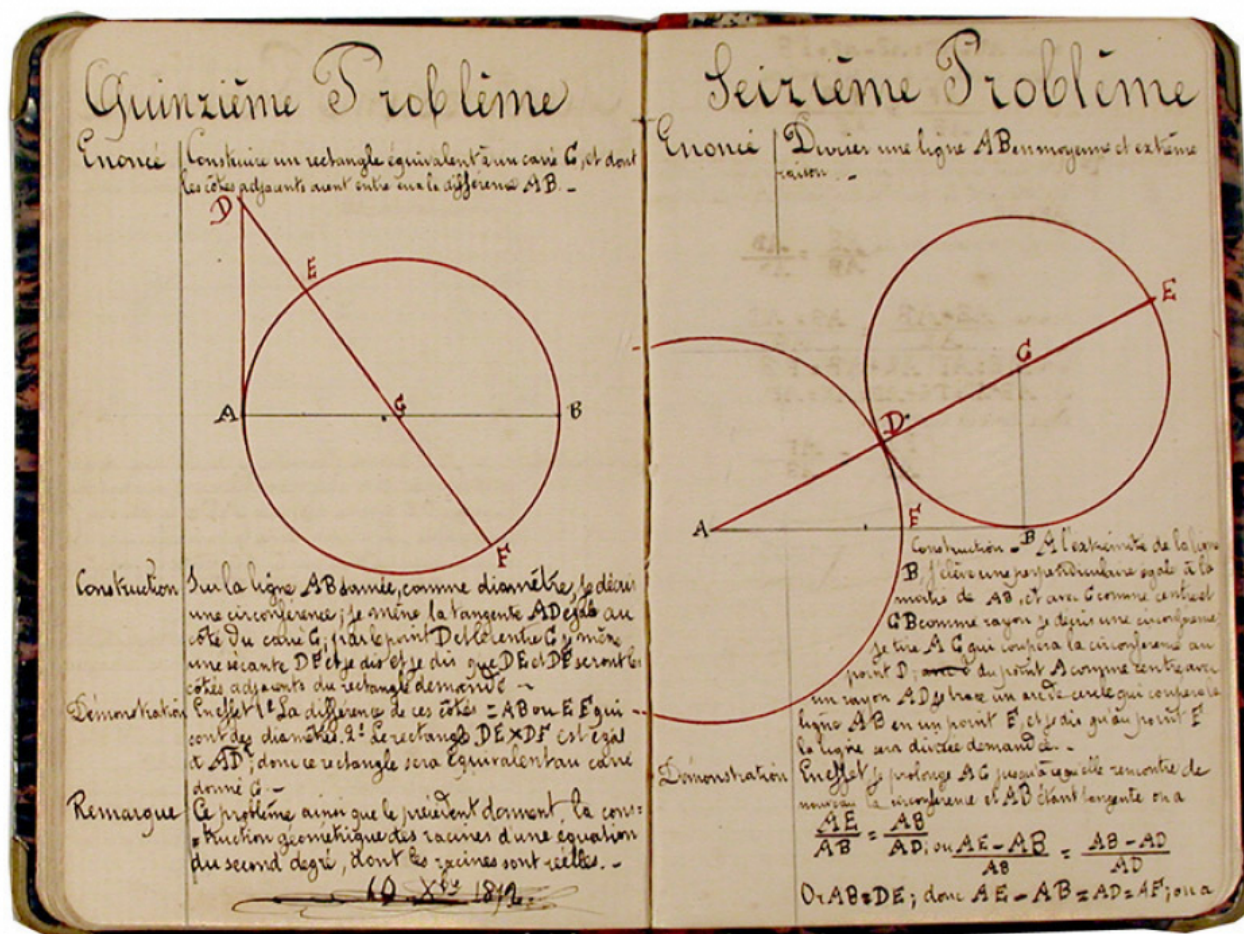 Quinzième Problème
Enoncé Construire un rectangle équivalent à un carré C, et dont
les côtés adjacents aient entre eux la différence AB. _
D
E
A
C
B
F
Construction Sur la ligne AB donnée, comme diamètre, je décris
une circonférence; je mène la tangente AD égale au
côté du carré C; par le point D et le centre C je mène
une sécante DF et je dis et je dis que DE et DF seront les
côtés adjacents du rectangle demandé _
Démonstration En effet 1º La différence de ces côtés = AB ou EF qui
sont des diamètres. 2º Le rectangle DE×DF est égal
à AD²; donc ce rectangle sera équivalent au carré
donné C. _
Remarque Ce problème ainsi que le précédent donnent, la cons=
=truction géométrique des racines d'une équation
du second degré, dont les racines sont réelles. _
10
Seizième Problème
Enoncé Diviser une ligne AB en moyenne et extrême
raison. _
E
C
D
A
F
B
Construction _ A l'extrémité de la ligne
B, j'élève une perpendiculaire égale à la
moitié de AB, et avec C comme centre et
CB comme rayon je décris une circonférence
je tire AC qui coupera la circonférence au
point D; du point A comme centre avec
un rayon AD je trace un arc de cercle qui coupera la
ligne AB en un point F, et je dis qu'au point F
la ligne sera divisée demandée. _
Démonstration En effet je prolonge AC jusqu'à ce qu'elle rencontre de
nouveau la circonférence et AB étant tangente on a
AE/AB = AB/AD; ou AE-AB/AB = AB-AD/AD
Or AB=DE; donc AE-AB=AD=AF; on a